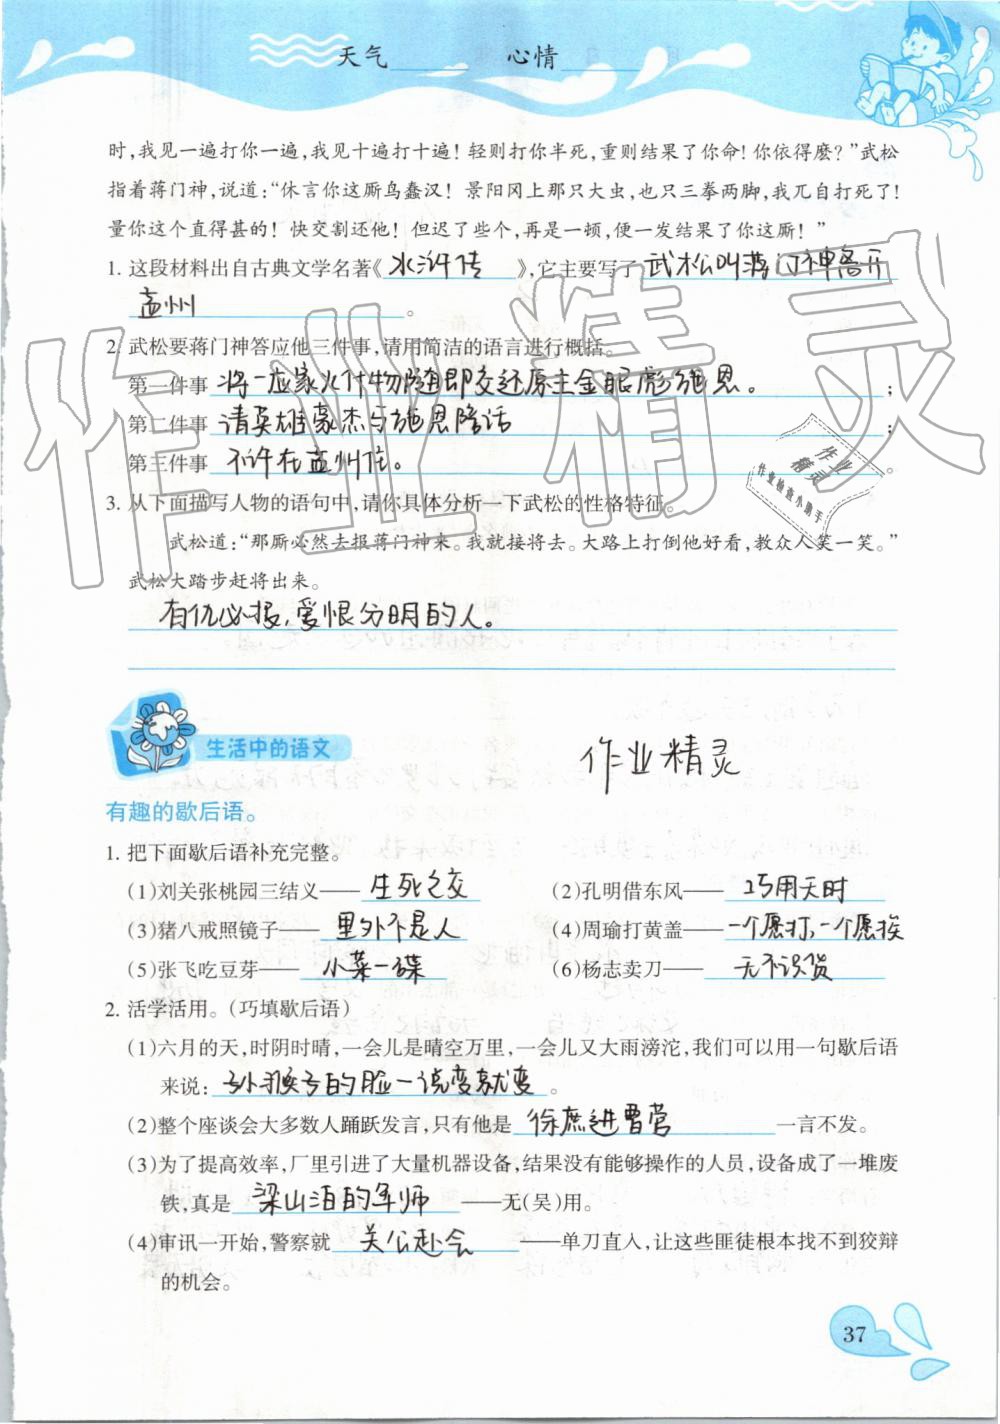 天气 心情
时，我见一遍打你一遍，我见十遍打十遍！轻则打你半死，重则结果了你命！你依得麽？”武松
指着蒋门神，说道：“休言你这厮鸟蠢汉！景阳冈上那只大虫，也只三拳两脚，我兀自打死了！
量你这个直得甚的！快交割还他！但迟了些个，再是一顿，便一发结果了你这厮！”
1. 这段材料出自古典文学名著《 水浒传 》，它主要写了 武松叫蒋门神离开
孟州 。
2. 武松要蒋门神答应他三件事，请用简洁的语言进行概括。
第一件事 将一应家火什物随即交还原主金眼彪施恩。 ；
第二件事 请英雄豪杰与施恩陪话 ；
第三件事 不许在孟州住。 。
3. 从下面描写人物的语句中，请你具体分析一下武松的性格特征。
武松道：“那厮必然去报蒋门神来。我就接将去。大路上打倒他好看，教众人笑一笑。”
武松大踏步赶将出来。
有仇必报，爱恨分明的人。
生活中的语文
作业精灵
有趣的歇后语。
1. 把下面歇后语补充完整。
(1)刘关张桃园三结义—— 生死之交 (2)孔明借东风—— 巧用天时
(3)猪八戒照镜子—— 里外不是人 (4)周瑜打黄盖—— 一个愿打，一个愿挨
(5)张飞吃豆芽—— 小菜一碟 (6)杨志卖刀—— 无人识货
2. 活学活用。（巧填歇后语）
(1)六月的天，时阴时晴，一会儿是晴空万里，一会儿又大雨滂沱，我们可以用一句歇后语
来说： 孙猴子的脸一说变就变 。
(2)整个座谈会大多数人踊跃发言，只有他是 徐庶进曹营 一言不发。
(3)为了提高效率，厂里引进了大量机器设备，结果没有能够操作的人员，设备成了一堆废
铁，真是 梁山泊的军师 ——无(吴)用。
(4)审讯一开始，警察就 关公赴会 ——单刀直入，让这些匪徒根本找不到狡辩
的机会。
37
作业精灵
作业
精灵
作业检查小助手